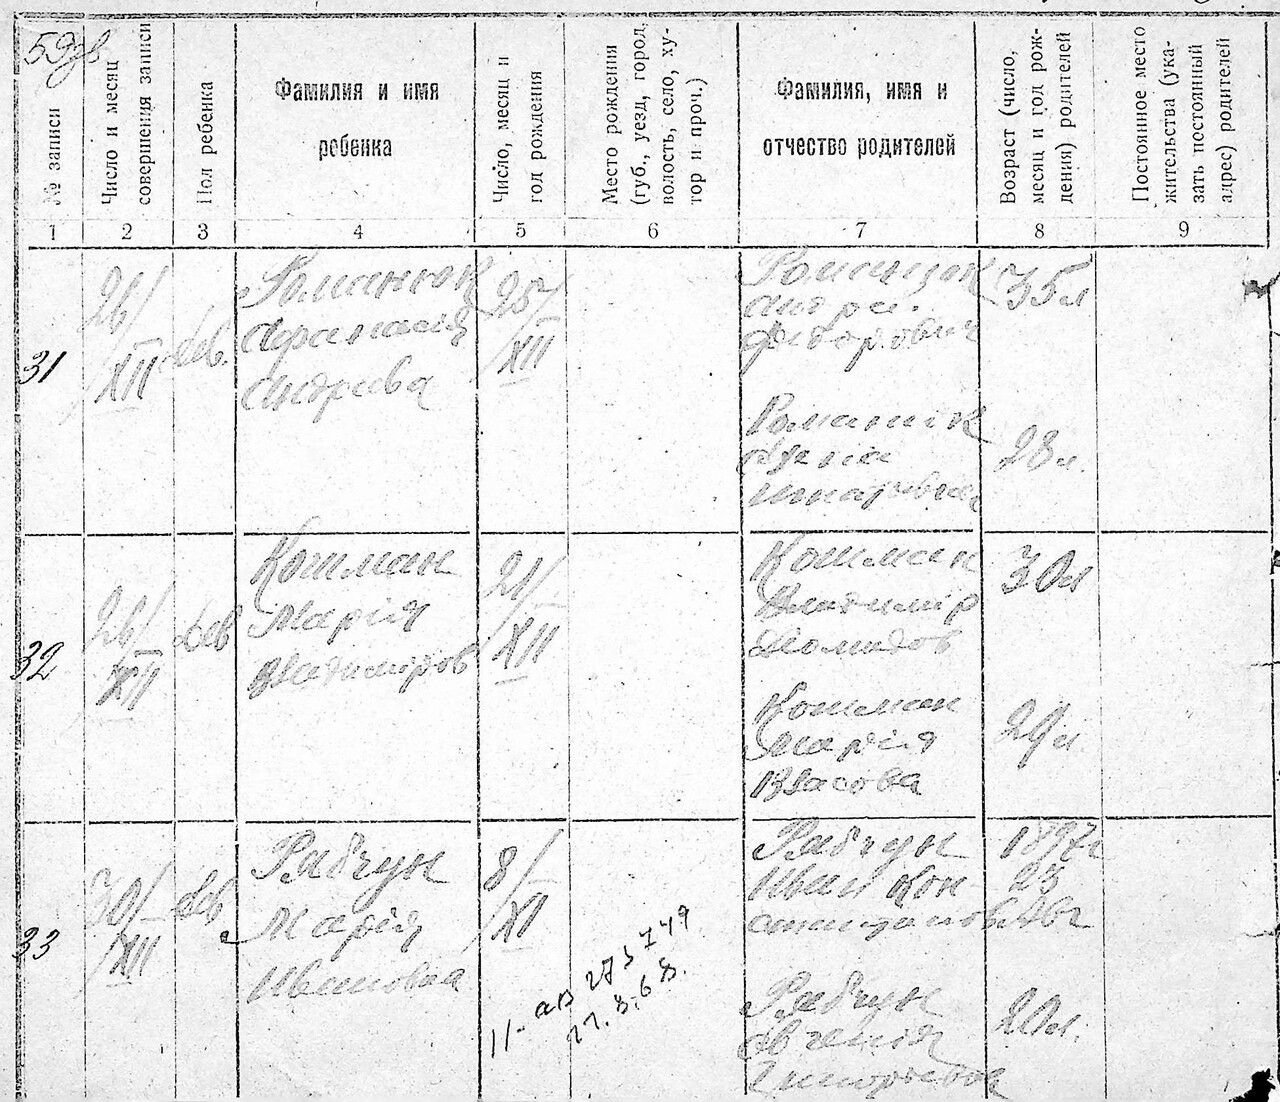 59зв
№ записи
Число и месяц
совершения записи
Пол ребенка
Фамилия и имя
ребенка
Число, месяц и
год рождения
Место рождения
(губ., уезд, город,
волость, село, ху-
тор и проч.)
Фамилия, имя и
отчество родителей
Возраст (число,
месяц и год рож-
дения) родителей
Постоянное место
жительства (ука-
зать постоянный
адрес) родителей
1 2 3 4 5 6 7 8 9
31
26/
XII
дев.
Романюк
Афанасія
Андреева
25/
XII
Романюк
Андрей
Федорович
35 л
Романюк
28 л.
32
26/
XII
Дев
Кошман
Марія
Владиміров
21/
XII
Кошман
Владимір
Діомидов
30 л
Кошман
Марія
Власова
29 л
33
30/
XII
дев
Рябчун
Марія
Ивановна
8/
XI
Рябчун
Иван Кон-
стантинов
1897г
23
Рябчун
Евгенія
Григорьевна
20 л.